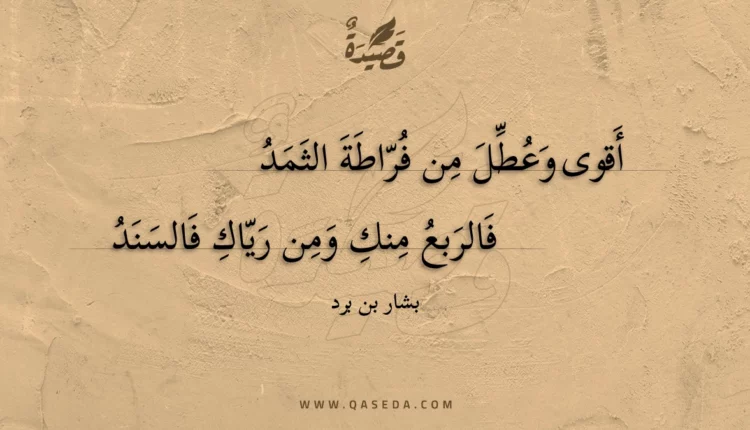 قَصِيدَةٌ
أَقوى وَعُطِّلَ مِن فُرّاطَةَ الثَمَدُ
فَالرَبعُ مِنكِ وَمِن رَيّاكِ فَالسَنَدُ
بشار بن برد
WWW.QASEDA.COM